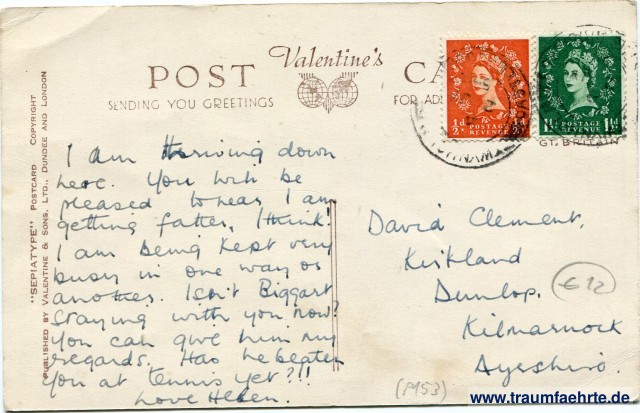 POST Valentine's CA
SENDING YOU GREETINGS
FOR AD
GT. BRITAIN
½d POSTAGE REVENUE ½d
1½d POSTAGE REVENUE 1½d
"SEPIATYPE" POSTCARD COPYRIGHT
PUBLISHED BY VALENTINE & SONS, LTD., DUNDEE AND LONDON
I am thriving down
here. You will be
pleased to hear I am
getting fatter, I think!
I am being kept very
busy in one way or
another. Isn't Biggart
staying with you now?
You can give him my
regards. Has he beaten
you at tennis yet?!!
Love Helen.
David Clement,
Kirkland
Dunlop,
Kilmarnock
Ayrshire.
€12
(M53)
www.traumfaehrte.de